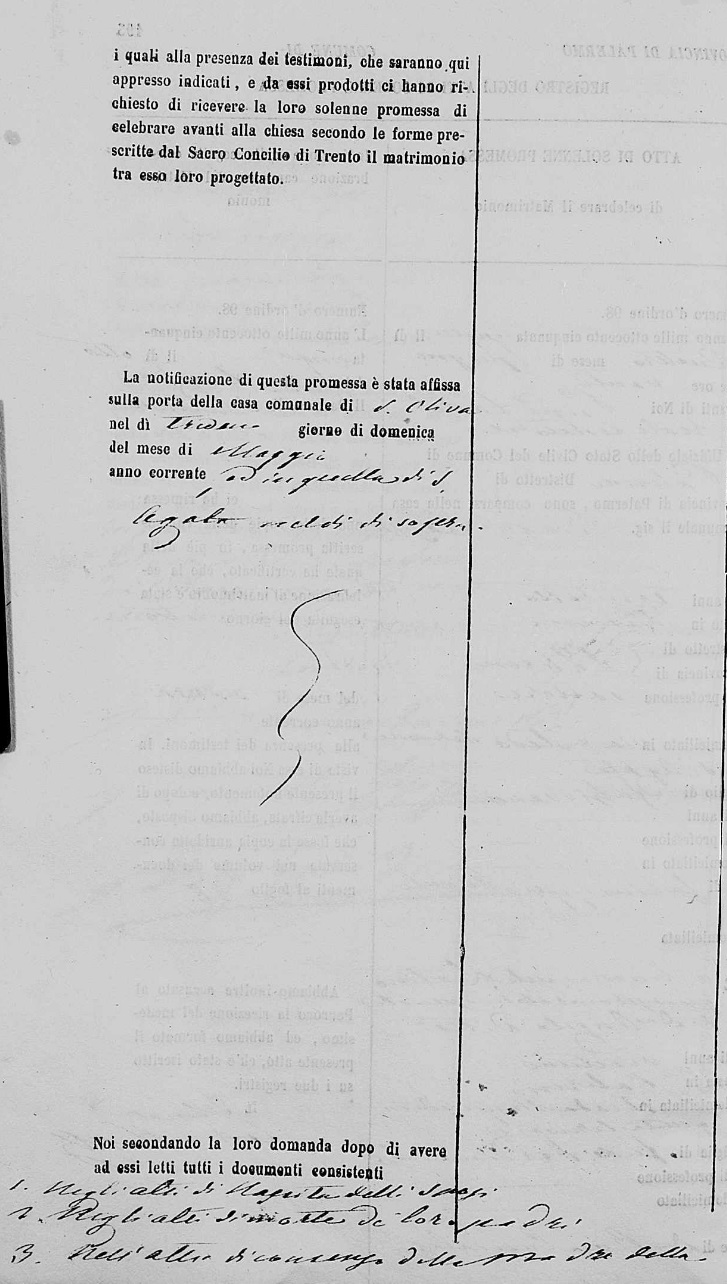 i quali alla presenza dei testimoni, che saranno qui
appresso indicati, e da essi prodotti ci hanno ri-
chiesto di ricevere la loro solenne promessa di
celebrare avanti alla chiesa secondo le forme pre-
scritte dal Sacro Concilio di Trento il matrimonio
tra esso loro progettato.
La notificazione di questa promessa è stata affissa
sulla porta della casa comunale di S. Oliva
nel dì giorno di domenica
del mese di Maggio
anno corrente ed in quella di S.
Agata nel dì di sopra.
Noi secondando la loro domanda dopo di avere
ad essi letti tutti i documenti consistenti
1. Negli atti di Nascita delli Sposi
2. Negli atti di morte de' loro padri
3. Nell'atto di consenso della Madre della